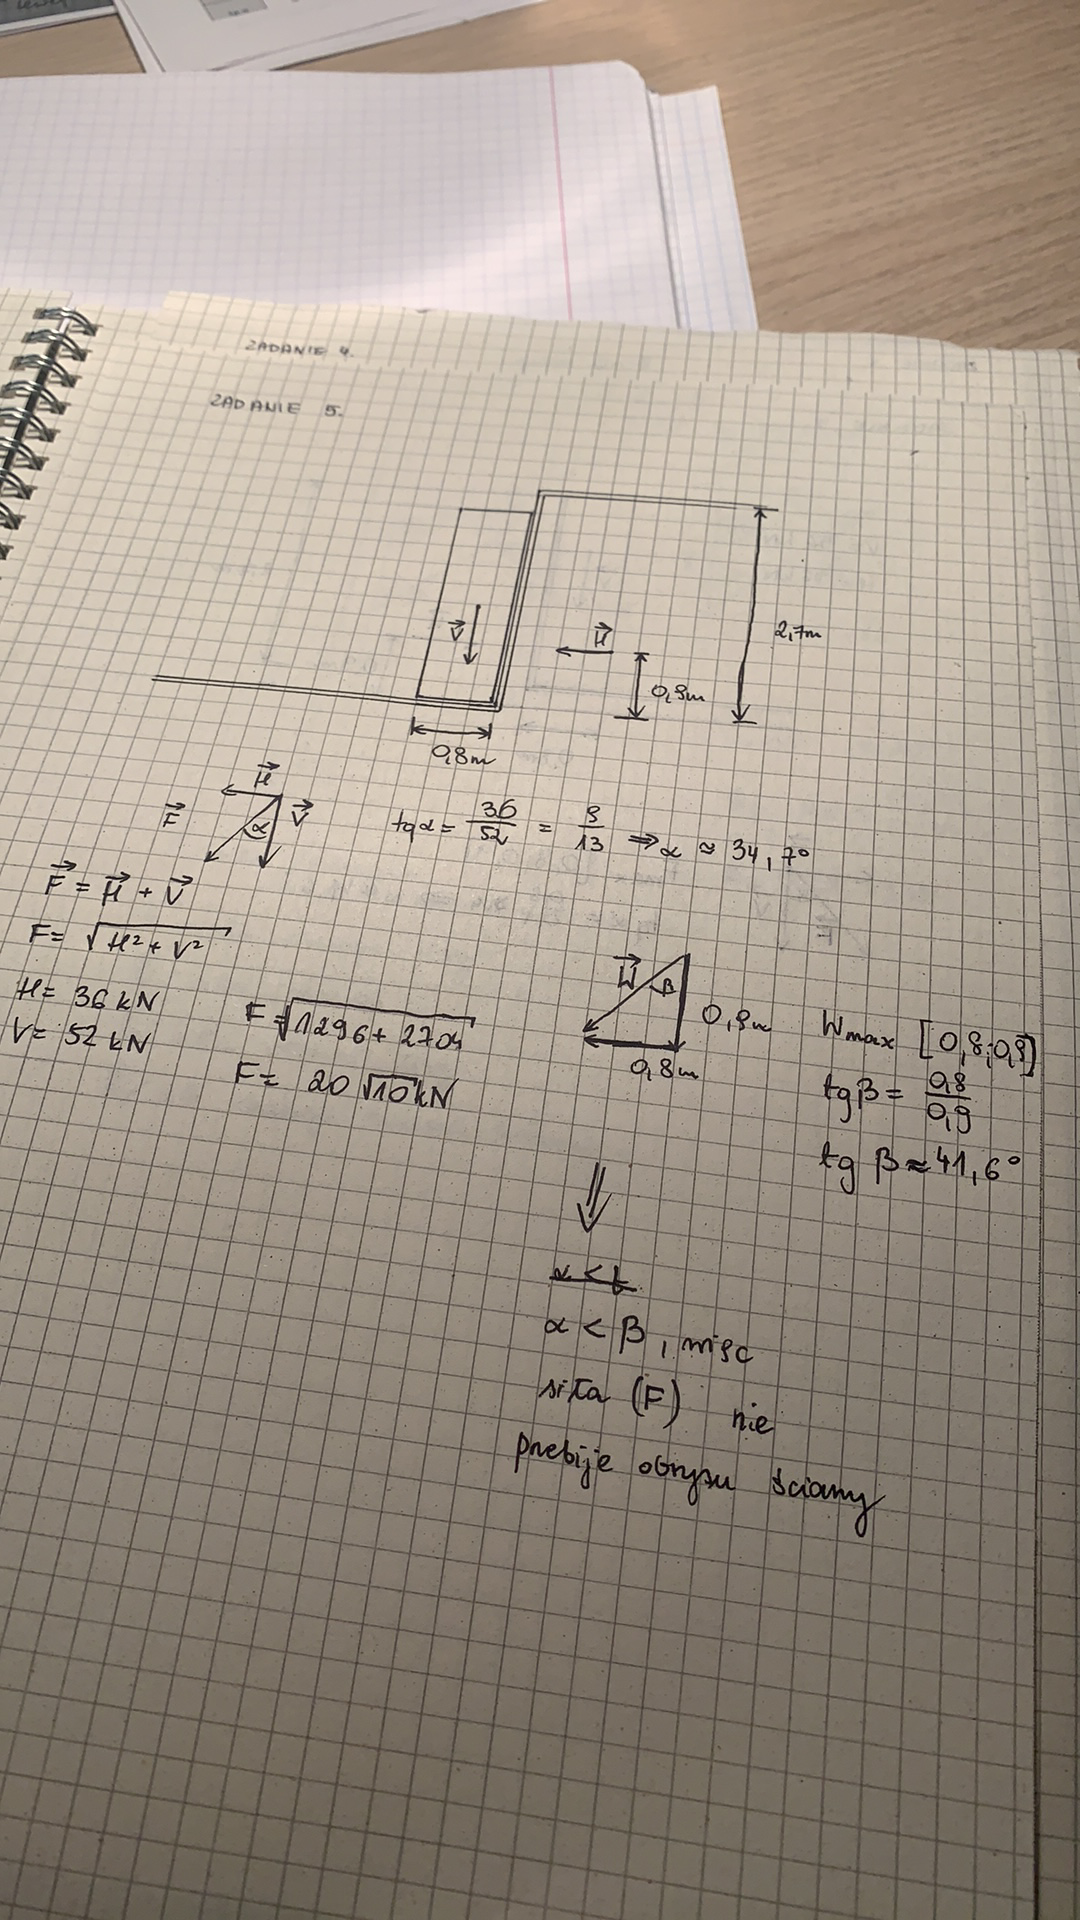 ZADANIE 4.
ZADANIE 5.
V
H
2,7m
0,9m
0,8m
H
F
V
α
tgα = 36/52 = 9/13 ⇒ α ≈ 34,7°
F = H + V
F = √H² + V²
H = 36 kN
V = 52 kN
F = √1296 + 2704
F = 20 √10 kN
W
β
0,9m
0,8m
Wmax [0,8;0,9]
tg β = 0,8/0,9
tg β ≈ 41,6°
⇓
α < β, więc
siła (F) nie
przebije obrysu ściany